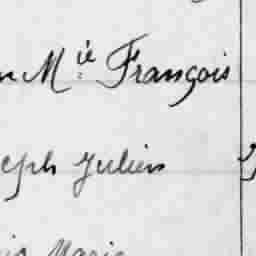 n Mie François
eph Julien
Marie